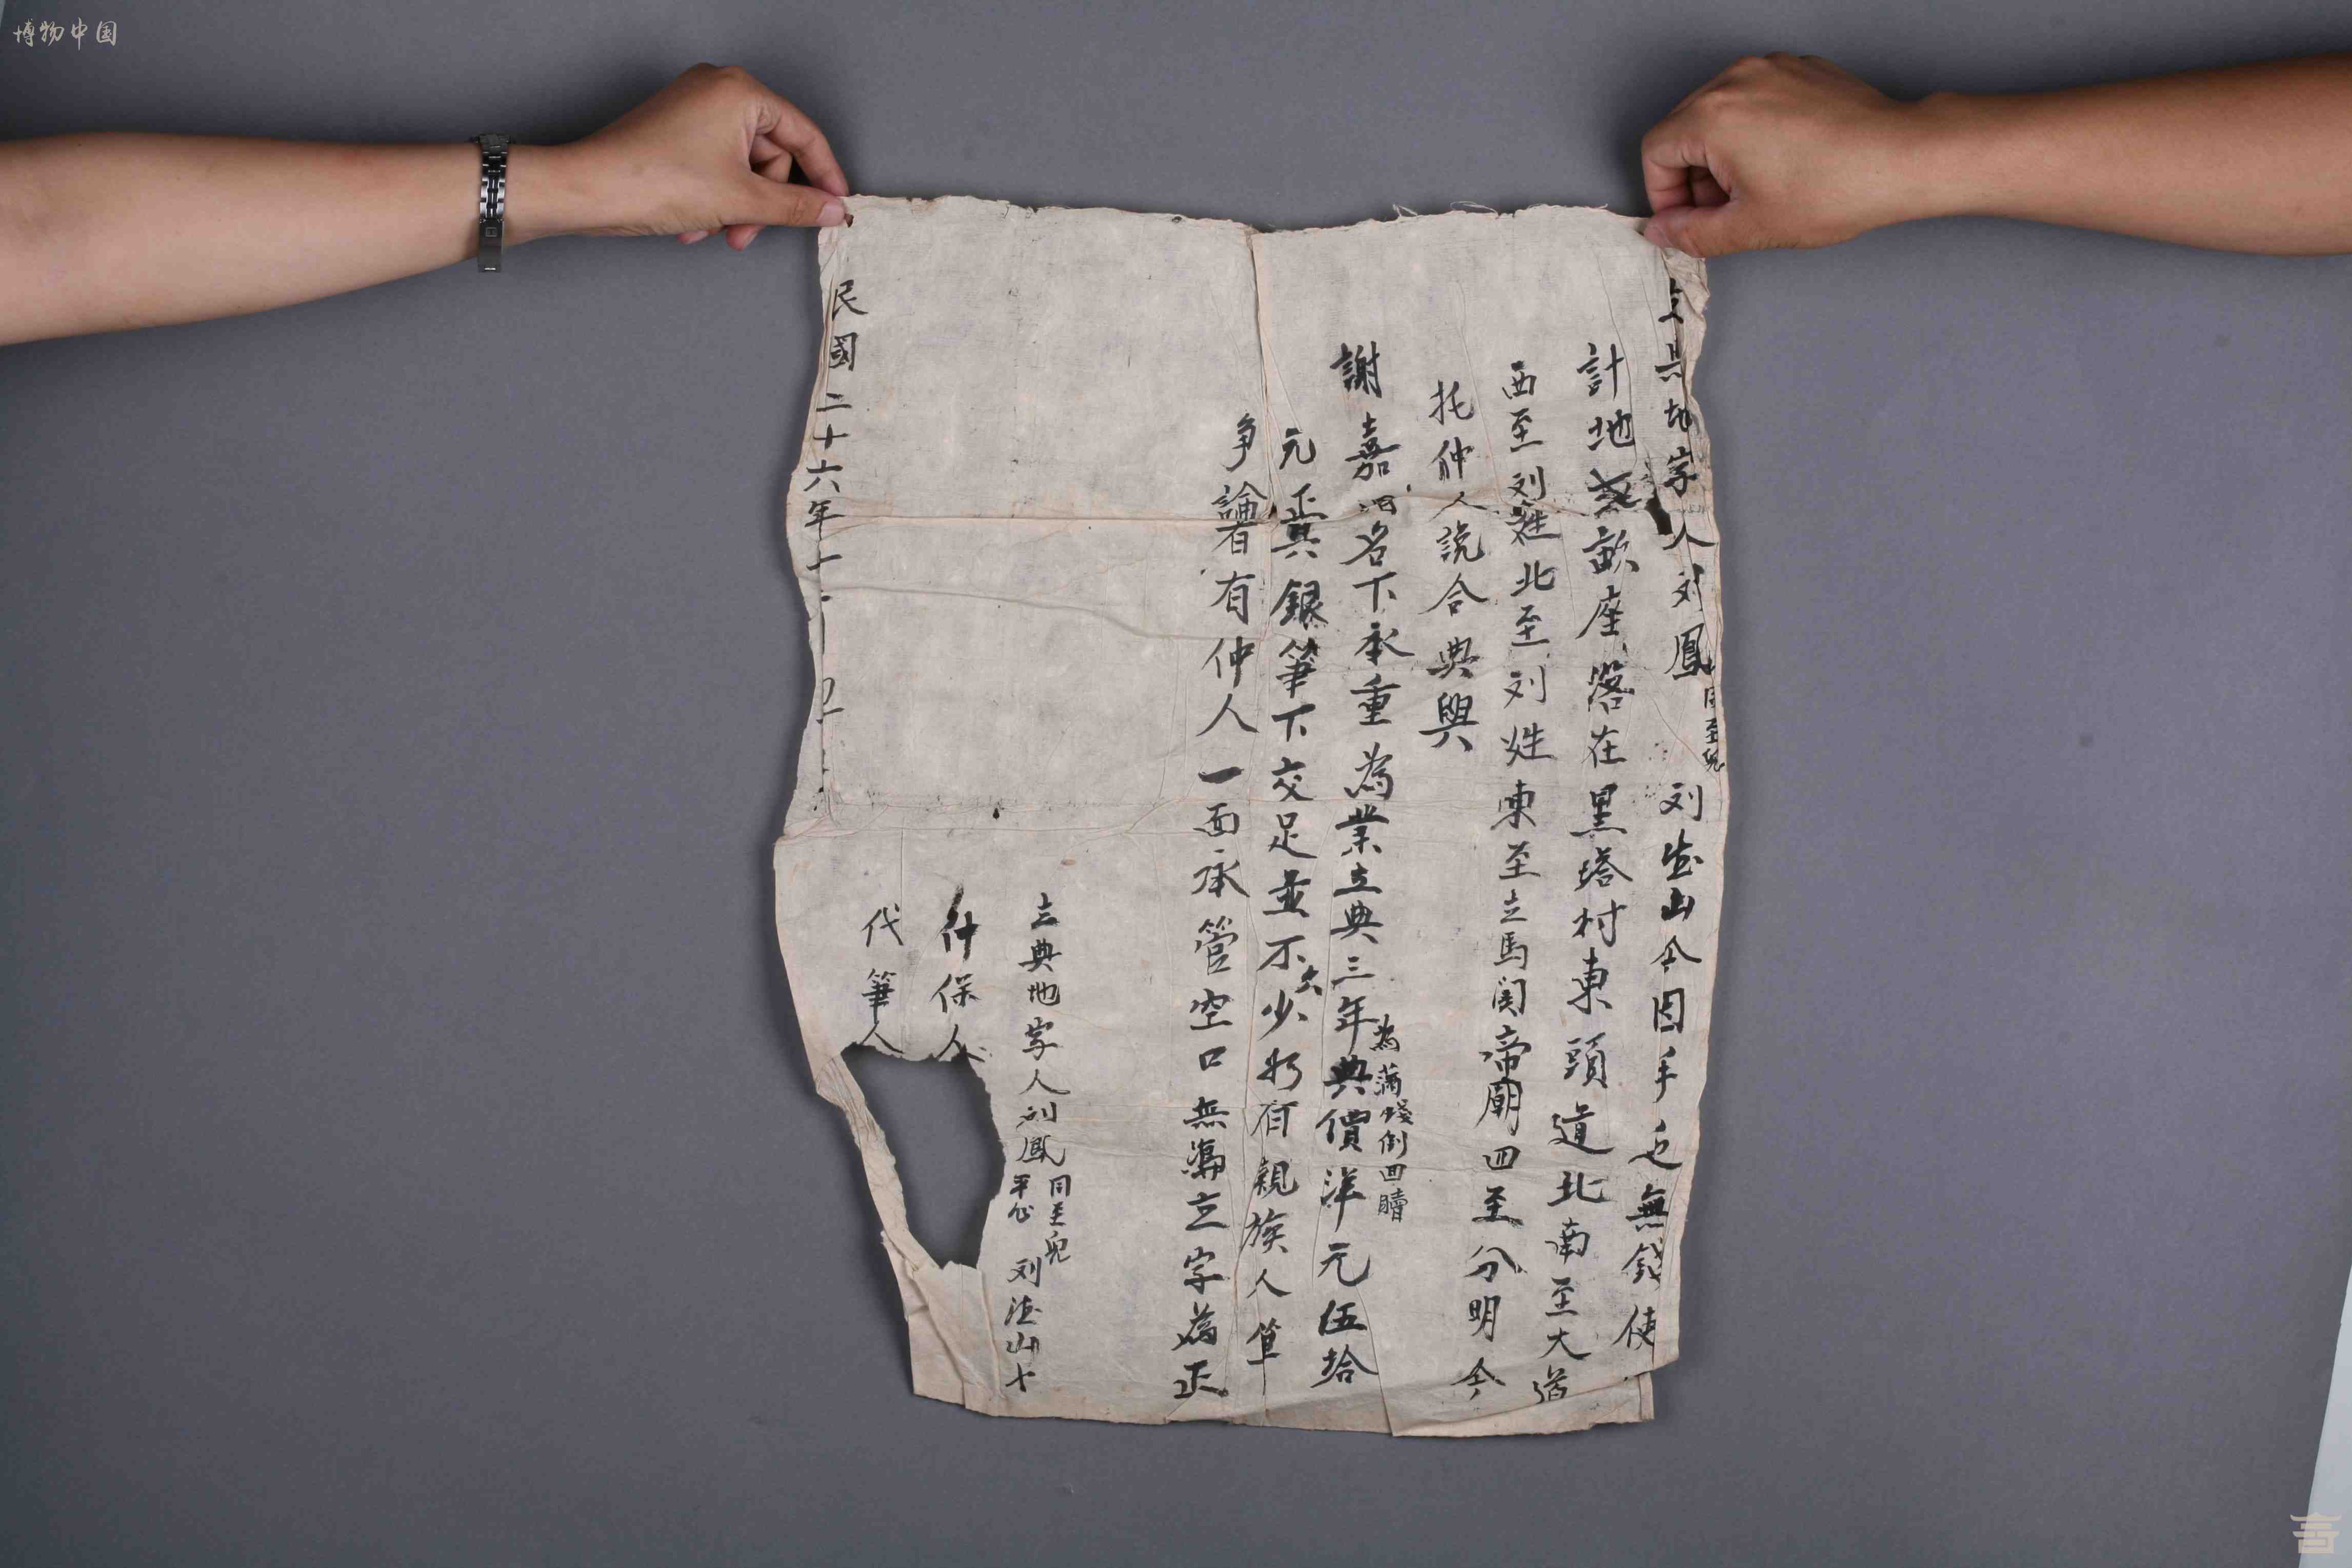 博物中国
立典地字人刘鳳 同至兒 刘德山今因手乏無錢使
計地 畝座落在黑塔村東頭道北南至大道
西至刘姓北至刘姓東至立馬関帝廟四至分明今
托仲人説合典與
謝嘉 名下承重為業立典三年典價洋元伍拾
為滿錢倒回贖
元正其銀筆下交足並不欠少如有親族人等
争論者有仲人一面承管空口無凴立字為正
立典地字人刘鳳 同至兒 刘德山十
平心
仲保人
代筆人
民國二十六年十